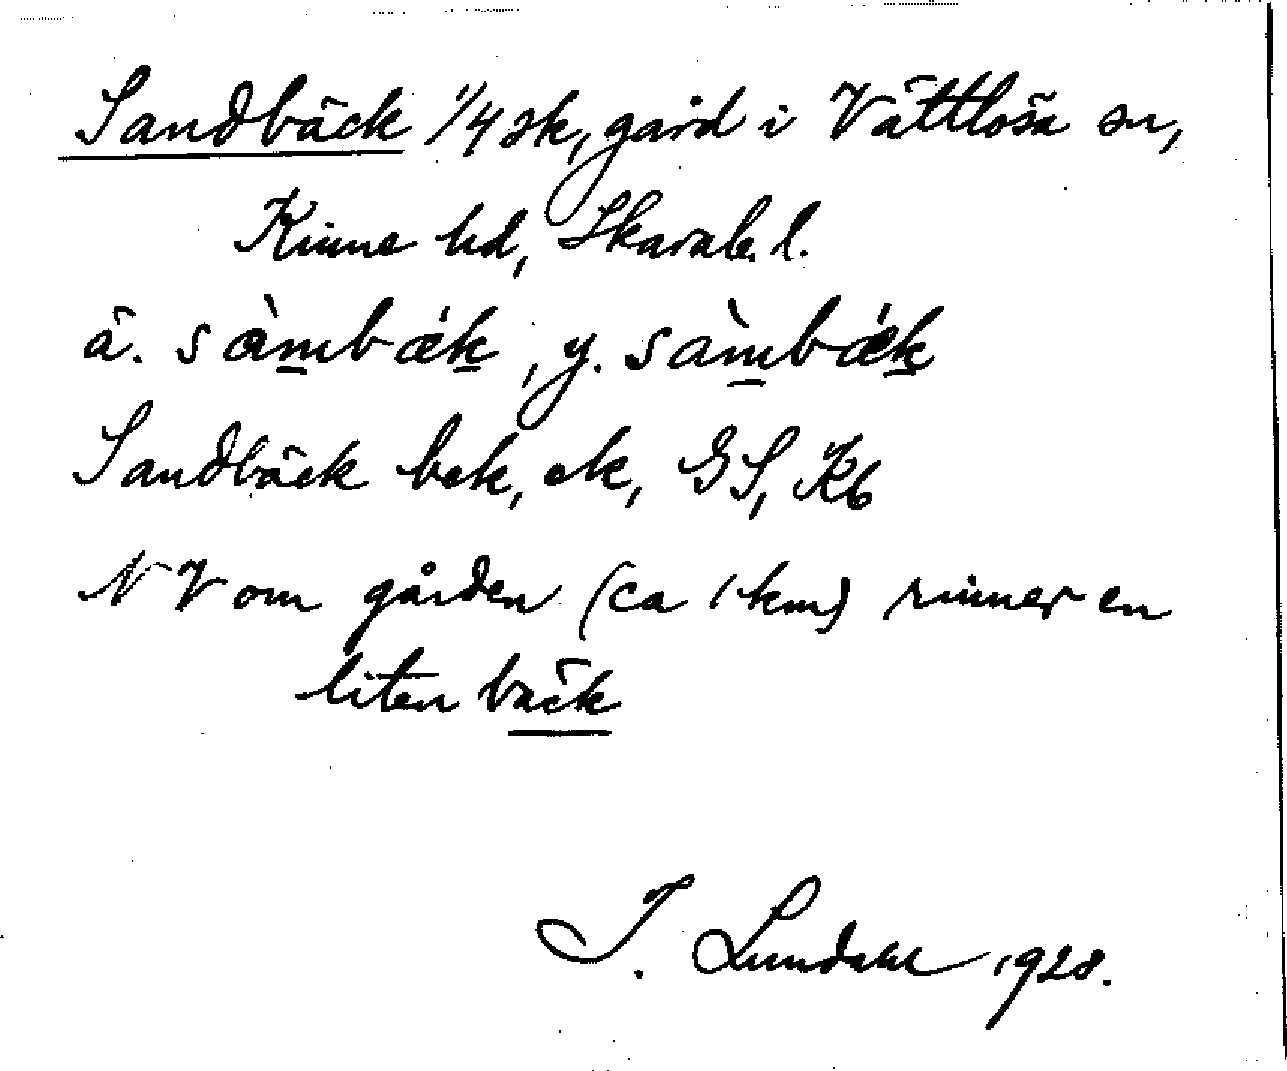 Sandbäck 1/4 sk, gård i Vättlösa sn,
Kinne hd, Skarab. l.
ä. sàmbæ̀k, y. sàmbæ̀k
Sandbäck bek, ek, GS, Kb
NV om gården (ca 1 km) rinner en
liten bäck
I. Lundahl 1928.